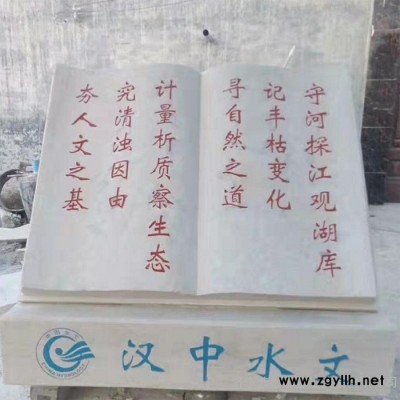 守河探江观湖库
记丰枯变化
寻自然之道
计量析质察生态
究清浊因由
夯人文之基
汉中水文
www.zgyllh.net